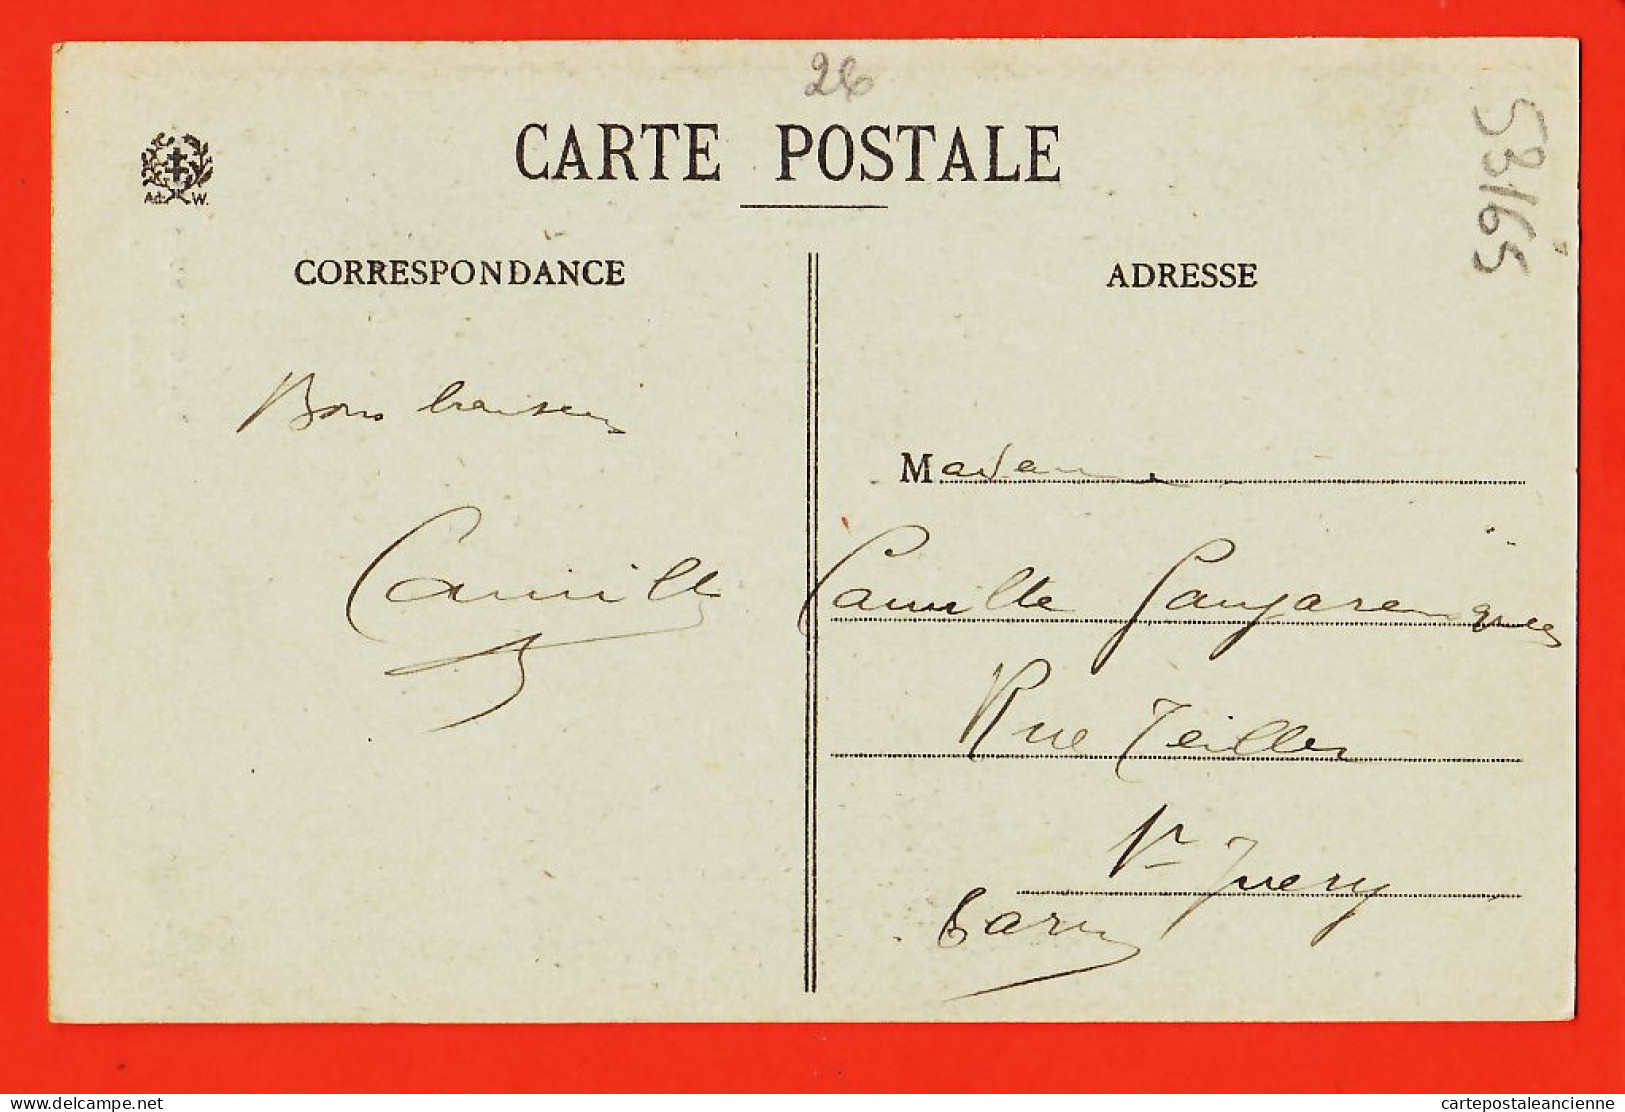 26
CARTE POSTALE
Ad. W.
CORRESPONDANCE
ADRESSE
53165
Bons baisers
Camille
Madame
Camille
Rue Teillet
St Juery
Tarn
delcampe.net
cartepostaleancienne